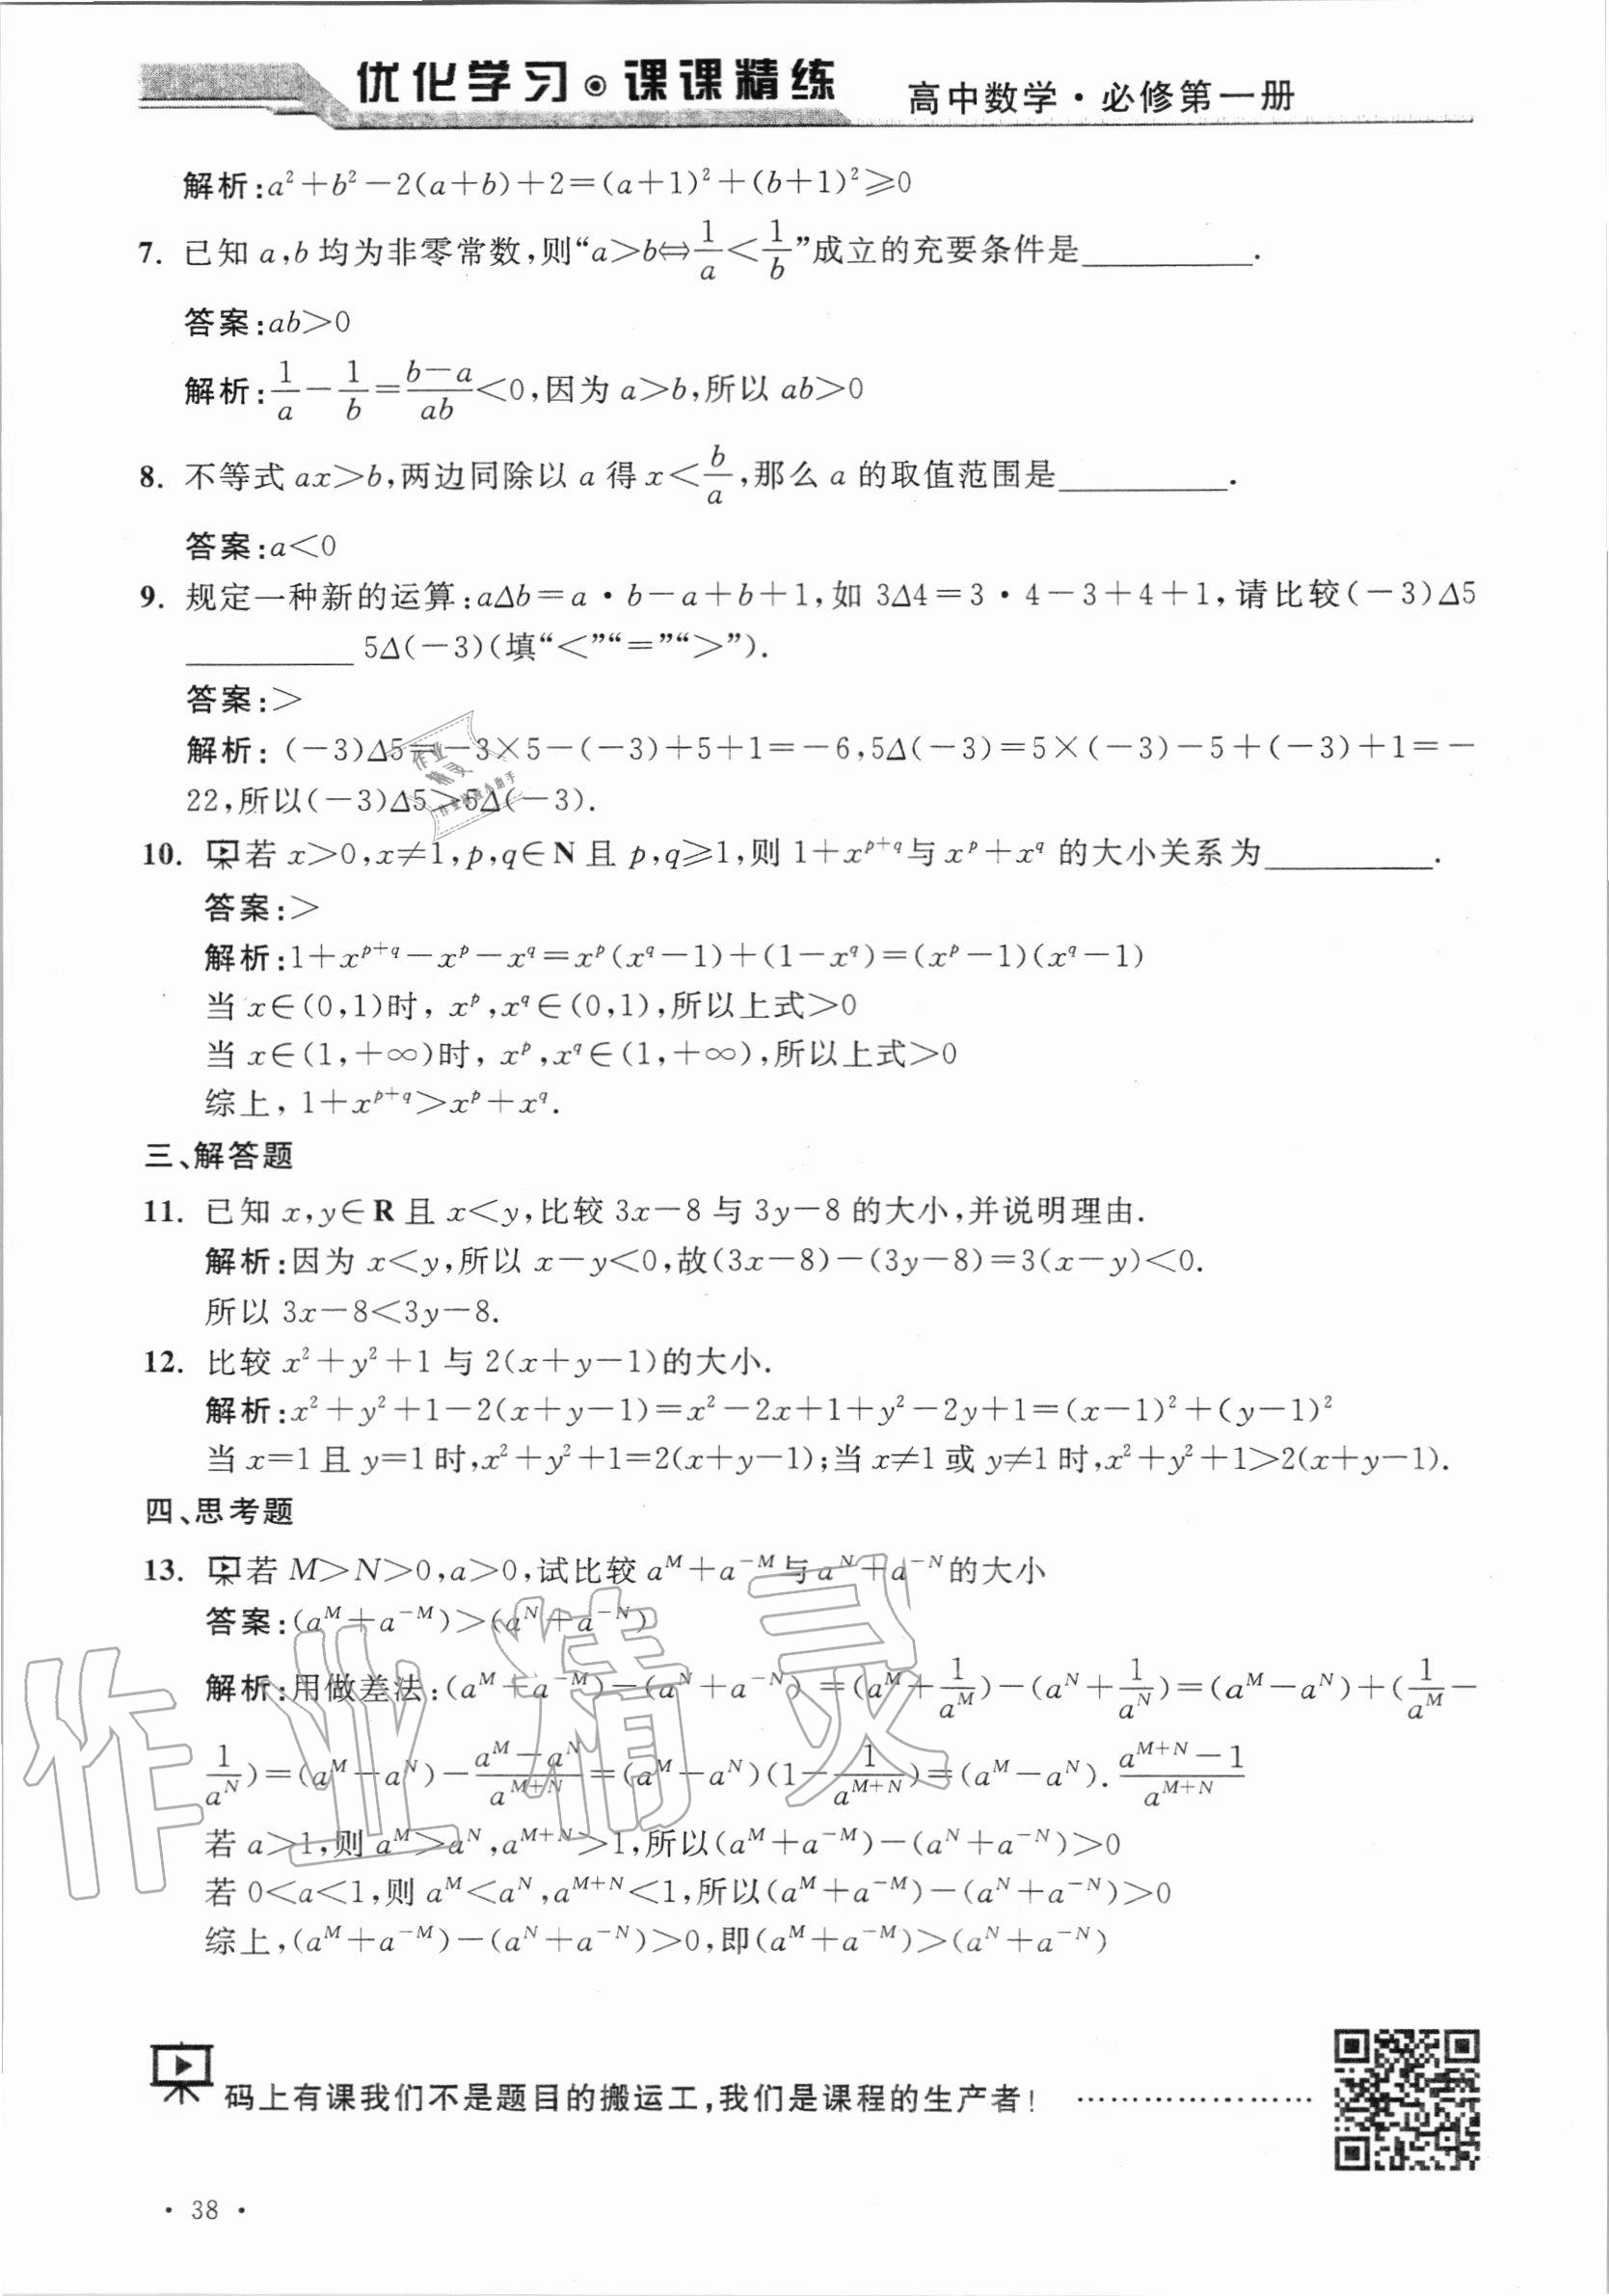 优化学习 课课精练 高中数学·必修第一册
解析:a²+b²-2(a+b)+2=(a+1)²+(b+1)²⩾0
7. 已知 a,b 均为非零常数,则“a>b⇔1/a<1/b”成立的充要条件是__________.
答案:ab>0
解析:1/a-1/b=(b-a)/ab<0,因为 a>b,所以 ab>0
8. 不等式 ax>b,两边同除以 a 得 x<b/a,那么 a 的取值范围是__________.
答案:a<0
9. 规定一种新的运算:aΔb=a·b-a+b+1,如 3Δ4=3·4-3+4+1,请比较(-3)Δ5
__________ 5Δ(-3)(填“<”“=”“>”).
答案:>
解析: (-3)Δ5=-3×5-(-3)+5+1=-6,5Δ(-3)=5×(-3)-5+(-3)+1=-
22,所以(-3)Δ5>5Δ(-3).
10. 若 x>0,x≠1,p,q∈N 且 p,q⩾1,则 1+x^{p+q}与 x^p+x^q 的大小关系为__________.
答案:>
解析:1+x^{p+q}-x^p-x^q=x^p(x^q-1)+(1-x^q)=(x^p-1)(x^q-1)
当 x∈(0,1)时, x^p,x^q∈(0,1),所以上式>0
当 x∈(1,+∞)时, x^p,x^q∈(1,+∞),所以上式>0
综上, 1+x^{p+q}>x^p+x^q.
三、解答题
11. 已知 x,y∈R 且 x<y,比较 3x-8 与 3y-8 的大小,并说明理由.
解析:因为 x<y,所以 x-y<0,故(3x-8)-(3y-8)=3(x-y)<0.
所以 3x-8<3y-8.
12. 比较 x²+y²+1 与 2(x+y-1)的大小.
解析:x²+y²+1-2(x+y-1)=x²-2x+1+y²-2y+1=(x-1)²+(y-1)²
当 x=1 且 y=1 时,x²+y²+1=2(x+y-1);当 x≠1 或 y≠1 时,x²+y²+1>2(x+y-1).
四、思考题
13. 若 M>N>0,a>0,试比较 a^M+a^{-M}与 a^N+a^{-N}的大小
答案:(a^M+a^{-M})>(a^N+a^{-N})
解析:用做差法:(a^M+a^{-M})-(a^N+a^{-N})=(a^M+1/a^M)-(a^N+1/a^N)=(a^M-a^N)+(1/a^M-
1/a^N)=(a^M-a^N)-(a^M-a^N)/a^{M+N}=(a^M-a^N)(1-1/a^{M+N})=(a^M-a^N).(a^{M+N}-1)/a^{M+N}
若 a>1,则 a^M>a^N,a^{M+N}>1,所以(a^M+a^{-M})-(a^N+a^{-N})>0
若 0<a<1,则 a^M<a^N,a^{M+N}<1,所以(a^M+a^{-M})-(a^N+a^{-N})>0
综上,(a^M+a^{-M})-(a^N+a^{-N})>0,即(a^M+a^{-M})>(a^N+a^{-N})
作业精灵
码上有课我们不是题目的搬运工,我们是课程的生产者! ·····················
· 38 ·